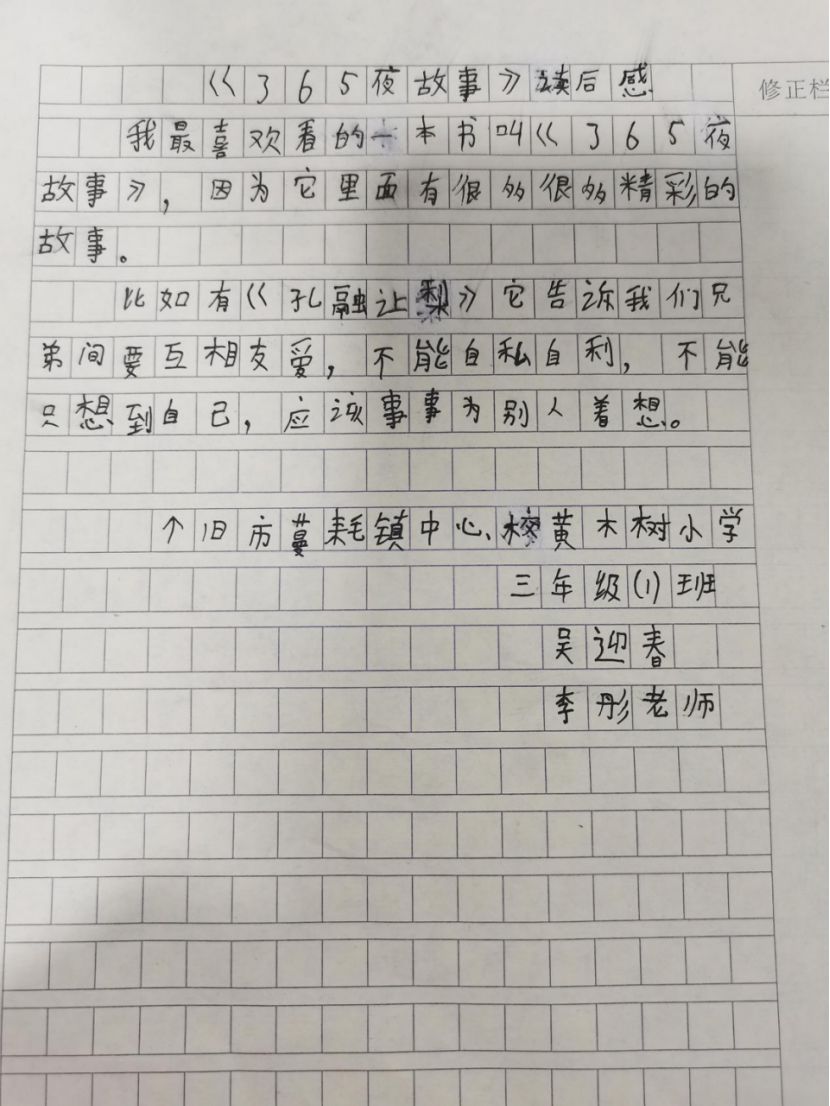 《365夜故事》读后感
修正栏
我最喜欢看的一本书叫《365夜
故事》，因为它里面有很多很多精彩的
故事。
比如有《孔融让梨》它告诉我们兄
弟间要互相友爱，不能自私自利，不能
只想到自己，应该事事为别人着想。
个旧市蔓耗镇中心校黄木树小学
三年级(1)班
吴迎春
李彤老师